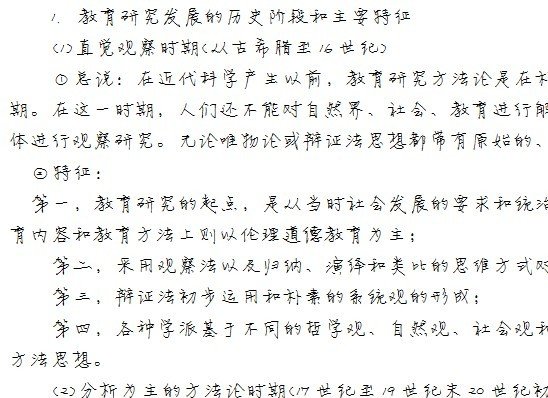 1. 教育研究发展的历史阶段和主要特征
(1)直觉观察时期(从古希腊至16世纪)
①总说：在近代科学产生以前，教育研究方法论是在朴
期。在这一时期，人们还不能对自然界、社会、教育进行解
体进行观察研究。无论唯物论或辩证法思想都带有原始的、
②特征：
第一，教育研究的起点，是从当时社会发展的要求和统治
育内容和教育方法上则以伦理道德教育为主；
第二，采用观察法以及归纳、演绎和类比的思维方式对
第三，辩证法初步运用和朴素的系统观的形成；
第四，各种学派基于不同的哲学观、自然观、社会观和
方法思想。
(2)分析为主的方法论时期(17世纪至19世纪末20世纪初